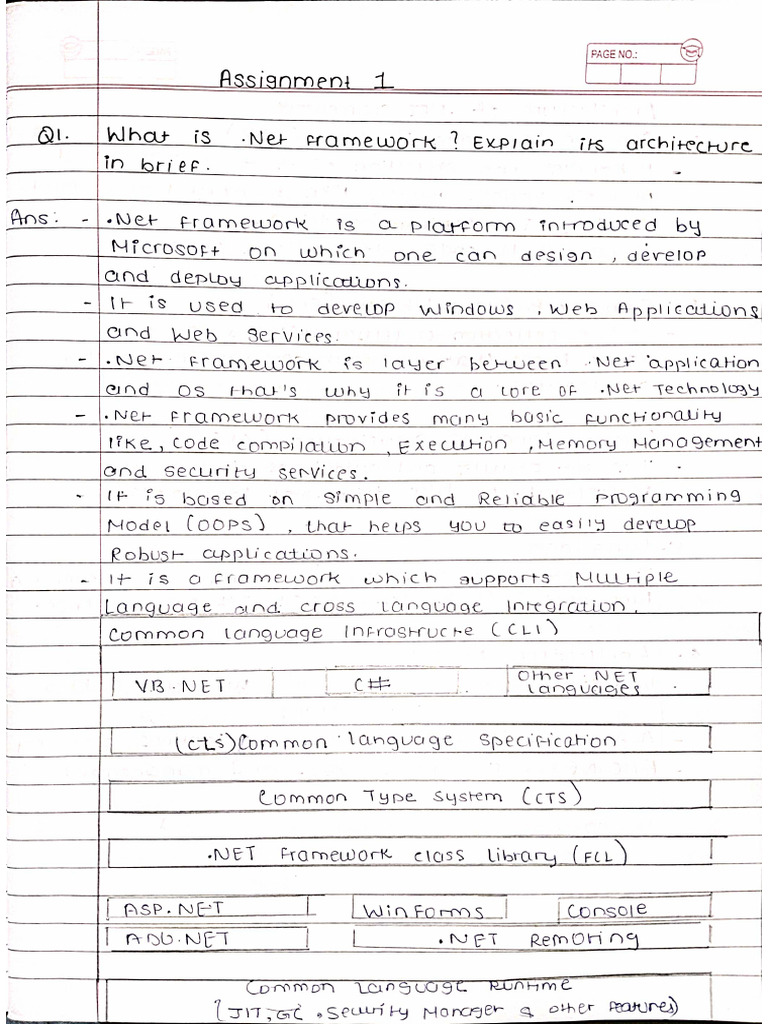 PAGE NO.:
Assignment 1
Q1. What is .Net framework? Explain its architecture
in brief.
Ans: - .Net framework is a platform introduced by
Microsoft on which one can design, develop
and deploy applications.
- It is used to develop Windows, Web Applications
and Web Services.
- .Net framework is layer between .Net application
and OS that's why it is a core of .Net Technology
- .Net framework provides many basic functionality
like, code compilation, Execution, Memory Management
and security services.
- It is based on simple and Reliable programming
Model (OOPS), that helps you to easily develop
Robust applications.
- It is a framework which supports Multiple
Language and cross language Integration.
Common language Infrastructe (CLI)
VB.NET C# Other .NET
languages
(cts) Common language specification
Common Type System (CTS)
.NET framework class library (FCL)
ASP.NET WinForms Console
ADO.NET .NET Remoting
Common Language Runtime
(JIT, GC, Security Manager & other features)